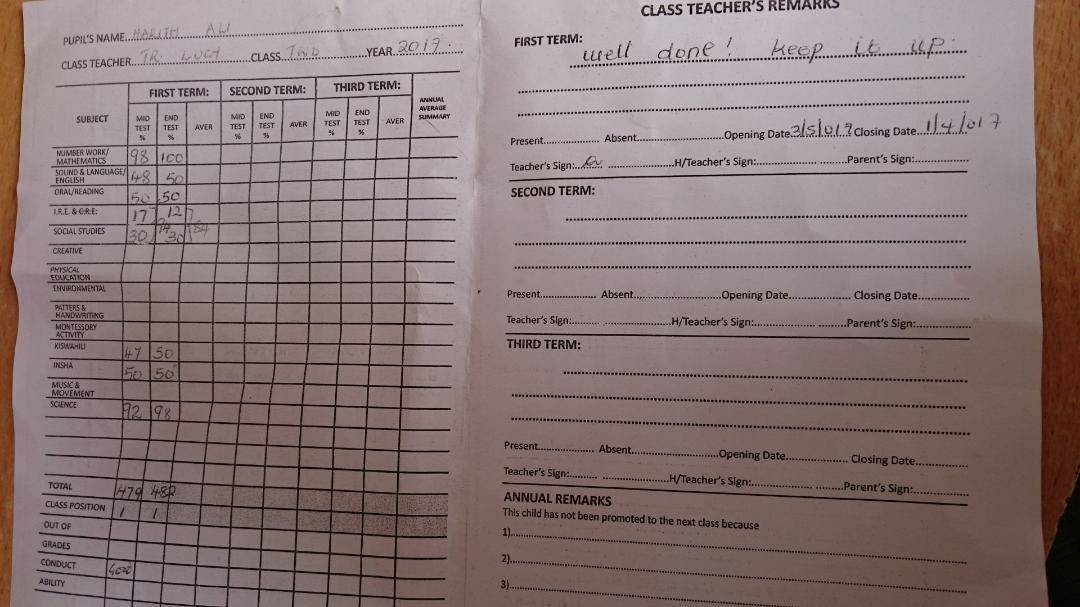 PUPIL'S NAME...HARITH ALI
CLASS TEACHER...TR. LUCY...CLASS...TWO...YEAR 2017.
SUBJECT
FIRST TERM: SECOND TERM: THIRD TERM: ANNUAL AVERAGE SUMMARY
MID TEST % END TEST % AVER MID TEST % END TEST % AVER MID TEST % END TEST % AVER
NUMBER WORK/ MATHEMATICS 98 100
SOUND & LANGUAGE/ ENGLISH 48 50
ORAL/READING 50 50
I.R.E. & C.R.E: 17 12
SOCIAL STUDIES 30 30
CREATIVE
PHYSICAL EDUCATION
ENVIRONMENTAL
PATTERS & HANDWRITING
MONTESSORY ACTIVITY
KISWAHILI 47 50
INSHA 50 50
MUSIC & MOVEMENT
SCIENCE 92 98
TOTAL 479
CLASS POSITION 1 1
OUT OF
GRADES
CONDUCT Good
ABILITY
CLASS TEACHER'S REMARKS
FIRST TERM: well done! keep it up.
Present... Absent...Opening Date 3/5/017 Closing Date...1/4/017
Teacher's Sign:... ...H/Teacher's Sign:... ...Parent's Sign:...
SECOND TERM:
Present... Absent...Opening Date... Closing Date...
Teacher's Sign:... ...H/Teacher's Sign:... ...Parent's Sign:...
THIRD TERM:
Present... Absent...Opening Date... Closing Date...
Teacher's Sign:... ...H/Teacher's Sign:... ...Parent's Sign:...
ANNUAL REMARKS
This child has not been promoted to the next class because
1)...
2)...
3)...